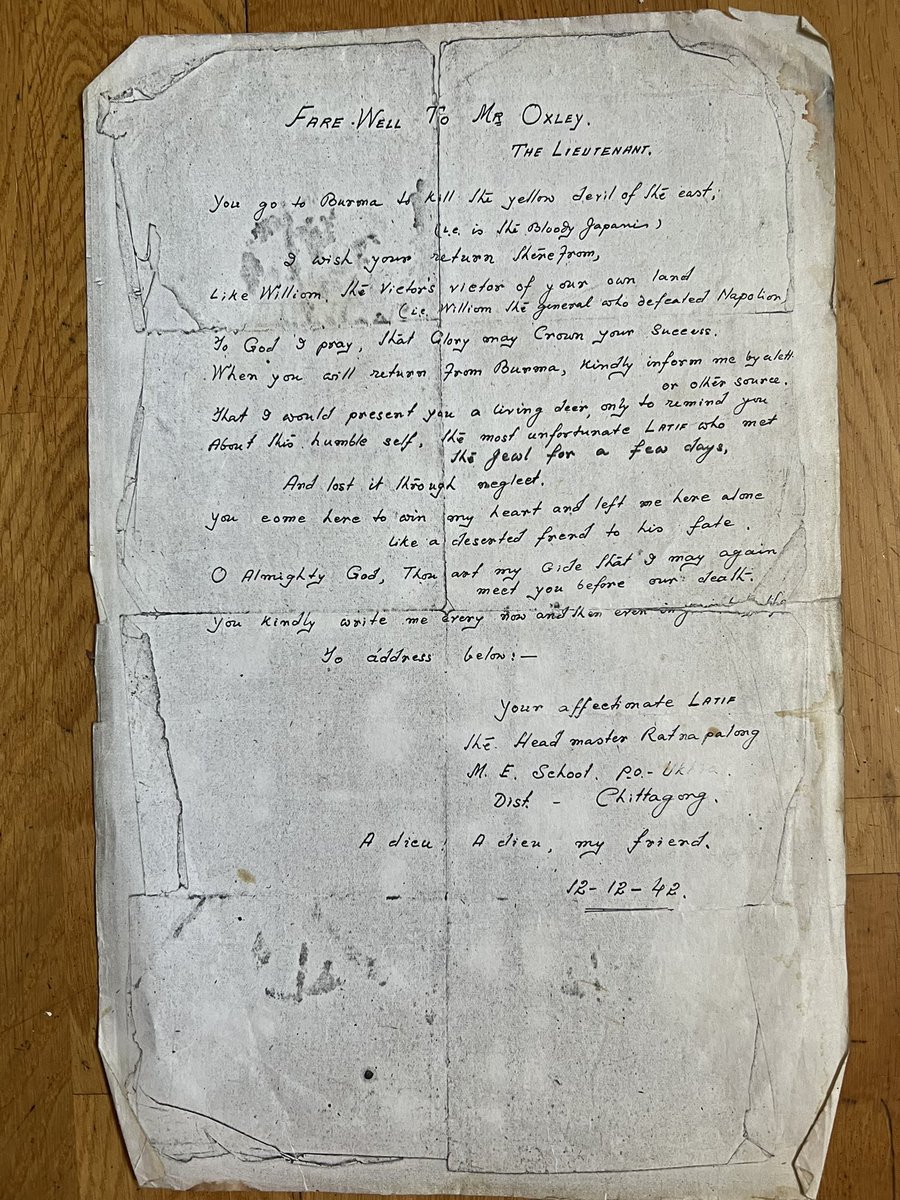 FARE-WELL TO MR OXLEY.
THE LIEUTENANT.
You go to Burma to kill the yellow devil of the east,
(i.e. is the Bloody Japanis)
I wish your return therefrom,
Like William the Victor's victor of your own land
(i.e. William the general who defeated Napolion)
To God I pray, that Glory may Crown your Success.
When you will return from Burma, kindly inform me by a lett
or other source.
That I would present you a living deer, only to remind you
About this humble self, the most unfortunate LATIF who met
the Jewl for a few days,
And lost it through neglect.
You come here to win my heart and left me here alone
Like a deserted frend to his fate.
O Almighty God, Thou art my Gide that I may again
meet you before our death.
You kindly write me every now and then even in
To address below:—
Your affectionate LATIF
The Head master Ratna palong
M. E. School. P.O.- Ukhia.
Dist. - Chittagong.
Adieu! Adieu, my friend.
12-12-42.